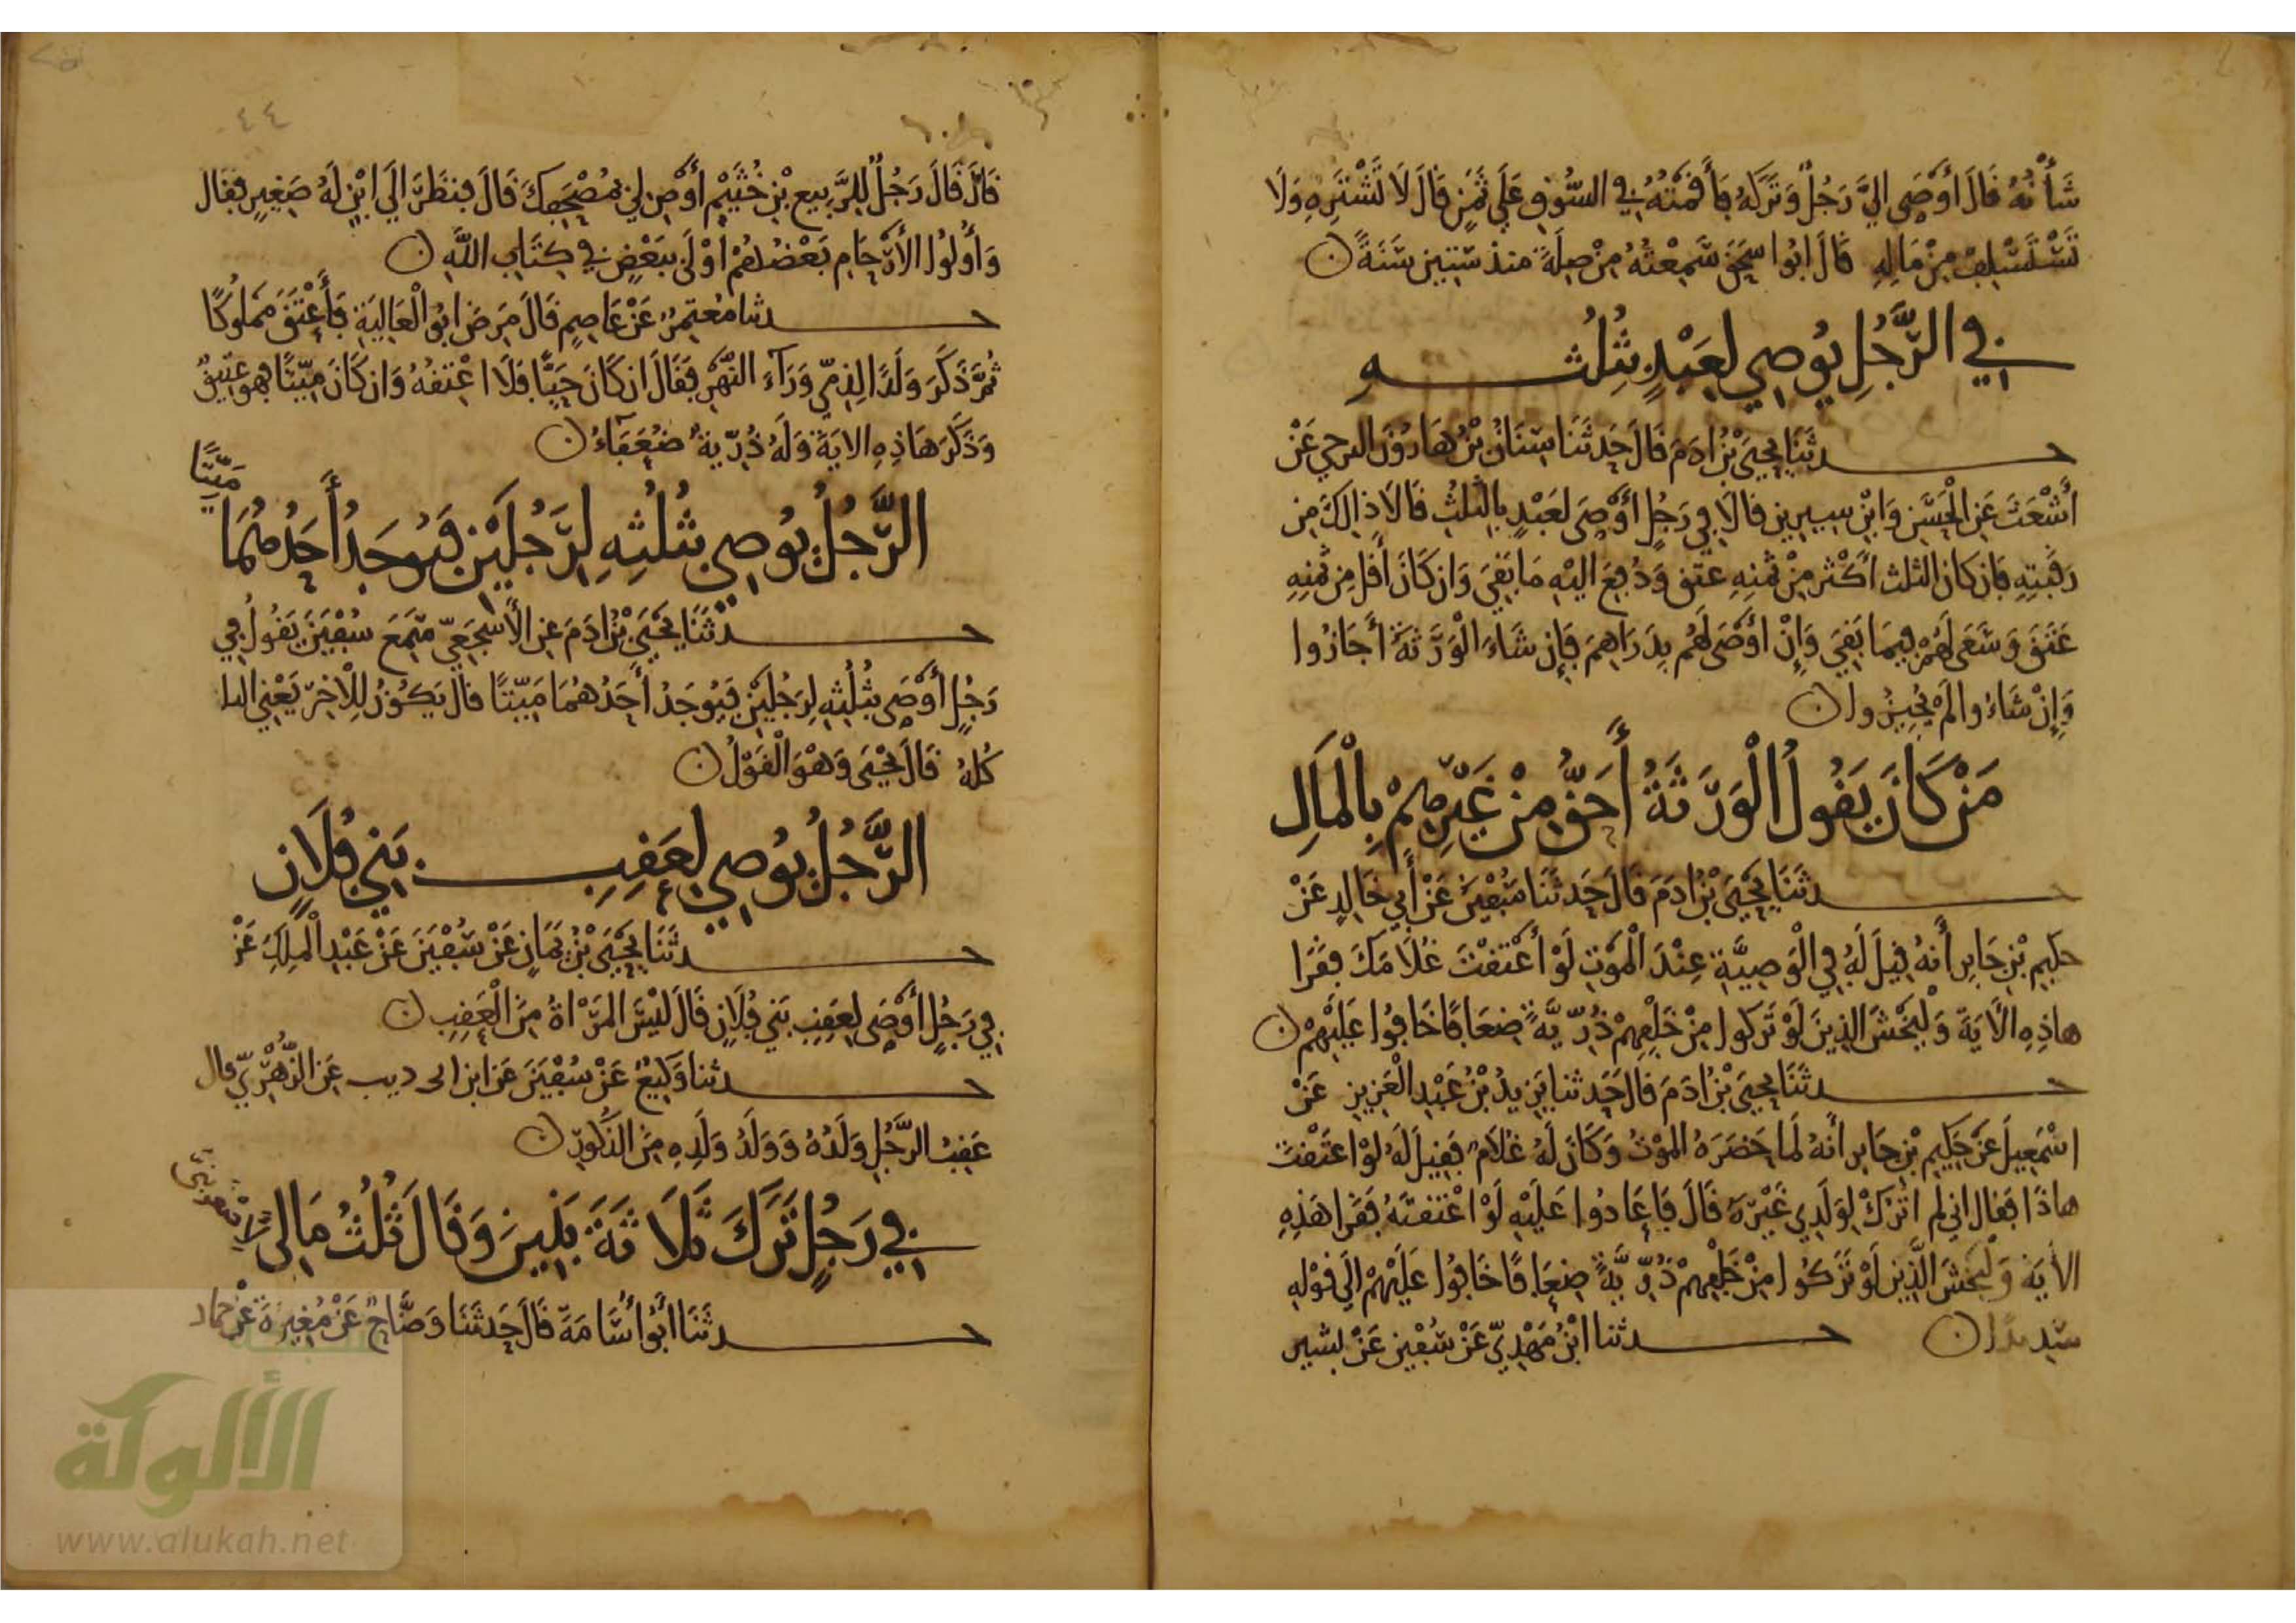 شَأْنُهُ قَالَ أَوْصَى إِلَيَّ رَجُلٌ وَتَرَكَهُ فَأَقَمْتُهُ فِي السُّوقِ عَلَى ثَمَنٍ قَالَ لَا تَشْتَرِهِ وَلَا
تَسْتَسْلِفْ مِنْ مَالِهِ قَالَ أَبُوا سْحَقَ سَمِعْتُهُ مِنْ صِلَةَ منذ سِتِّينَ سَنَةً
فِي الرَّجُلِ يُوصِي لِعَبْدِهِ بِثُلُثِهِ
حدثَنَا يَحْيَى بْنُ ادَمَ قَالَ حَدثَنَا سِنَانُ بْنُ هَارُونَ البرجمي عَنْ
أَشْعَثَ عَنِ الْحَسَنِ وَابْنِ سِيرِينَ قَالَا فِي رَجُلٍ أَوْصَى لِعَبْدِهِ بِالثلُثِ قَالَا ذالِكَ مِن
رَقَبَتِهِ فَإن كَانَ الثلث أَكْثَرَ مِنْ ثَمَنِهِ عتق وَدُفِعَ إليْهِ مَا بَقِيَ وَإن كَانَ أَقَلَّ مِن ثَمَنِهِ
عَتَقَ وَسَعَى لَهُمْ فِيمَا بَقِيَ وَإِنْ أَوْصَى لَهُم بِدَرَاهِمَ فَإِن شَاءَ الْوَرَثَةُ أَجَازُوا
وَإِنْ شَاءُوا لَمْ يُجِيزُوا
مَنْ كَانَ يَقُولُ الْوَرَثَةُ أَحَقُّ مِنْ غَيْرِهِمْ بِالْمَالِ
حدثَنَا يَحْيَى بْنُ ادَمَ قَالَ حَدثَنَا سُفْيَنُ عَنْ أَبِي خَالِدٍ عَنْ
حَكِيمِ بْنِ جَابِرٍ أَنهُ قِيلَ لَهُ فِي الْوَصِيَّةِ عِنْدَ الْمَوْتِ لَوْ أَعْتَقْتَ غُلَامَكَ فقَرَا
هاذِهِ الْآيَةَ وَلْيَخْشَ الذِينَ لَوْ تَرَكُوا مِنْ خَلْفِهِمْ ذُرِّيَّةً ضِعَافًا خَافُوا عَلَيْهِمْ
حدثَنَا يَحْيَى بْنُ ادَمَ قَالَ حَدثنا يَزِيدُ بْنُ عَبْدِ الْعَزِيزِ عَنْ
اسْمَعِيلَ عَنْ حَكِيمِ بْنِ جَابِرٍ أَنهُ لَمَا حَضَرَهُ الموْتُ وَكَانَ لَهُ غُلَامٌ فَقِيلَ لَهُ لَوْ اعْتَقْتَ
هاذَا فَقَالَ اني لم اتْرُكْ لِوَلَدِي غَيْرَهُ قَالَ فَأَعَادُوا عَلَيْهِ لَوْ اعْتَقتَهُ فَقَرا هَذِهِ
الآيَةَ وَلْيَخْشَ الَّذِينَ لَوْ تَرَكُوا مِنْ خَلْفِهِمْ ذُرِّيَّةً ضِعَافًا خَافُوا عَلَيْهِمْ إلَى قَوْلِهِ
سَدِيدًا حدثنا ابْنُ مَهْدِيٍّ عَنْ سُفْيَنَ عَنْ نسير
٤٤
قَالَ قَالَ رَجُلٌ لِلرَّبِيعِ بْنِ خُثَيْمٍ أَوْصِ لِي بمُصْحَفِكَ قَالَ فنَظَرَ إلَى ابْنٍ لَهُ صَغِيرٍ فقَال
وَأُولُوا الأَرْحَامِ بَعْضُهُمْ أَوْلَى بِبَعْضٍ فِي كِتَابِ اللَّهِ
حدثنا مُعْتَمِرٌ عَنْ عَاصِمٍ قَالَ مَرِضَ ابُو الْعَالِيَةِ فَأَعْتَقَ مَمْلُوكًا
ثُمَّ ذَكَرَ وَلَدًا لِذمّي وَرَآءَ النَّهْرِ فَقَالَ ان كَانَ حَيًّا فَلَا اعْتِقُهُ وَان كَانَ مَيِّتًا فهو عَتِيقٌ
وَذَكَرَ هَاذِهِ الايَةَ وَلَهُ ذُرِّيةٌ ضُعَفَاءُ
الرَّجُلُ يُوصِي بِثُلُثِهِ لِرَجُلَيْنِ فَيُوجَدُ أَحَدُهُمَا مَيِّتًا
حدثَنَا يَحْيَى بْنُ ادَمَ عَنِ الأَشْجَعِيِّ سَمِعَ سُفْيَنَ يَقُولُ فِي
رَجُلٍ أَوْصَى بِثُلُثِهِ لِرَجُلَيْنِ فَيُوجَدُ أَحَدُهُمَا مَيِّتًا قَالَ يَكُونُ لِلْآخَرِ يَعْنِي الثلث
كُلهُ قَالَ يَحْيَى وَهْوَ الْقَوْلُ
الرَّجُلُ يُوصِي لِعَقِبِ بَنِي فُلَانٍ
حدثَنَا يَحْيَى بْنُ يَمَانٍ عَنْ سُفْيَنَ عَنْ عَبْدِ الْمَلِكِ عَنْ
فِي رَجُلٍ أَوْصَى لِعَقِبِ بَنِي فُلَانٍ قَالَ لَيْسَ المَرْأةُ مِنَ الْعَقِبِ
حدثنا وَكِيعٌ عَنْ سُفْيَنَ عَنِ ابن ابى ذيب عَنِ الزُّهْرِيِّ قَال
عَقِبُ الرَّجُلِ وَلَدُهُ وَوَلَدُ وَلَدِهِ مِنَ الذُّكُورِ
فِي رَجُلٍ تَرَكَ ثَلَاثَةَ بَنِينَ وَقَالَ ثُلُثُ مَالِي لِأَصْغَرِ بَنِيَّ
حدثَنَا أَبُو أُسَامَةَ قَالَ حَدثَنَا وَضَّاحٌ عَنْ مُغِيرَةَ عَنْ حماد
الألوكة
www.alukah.net